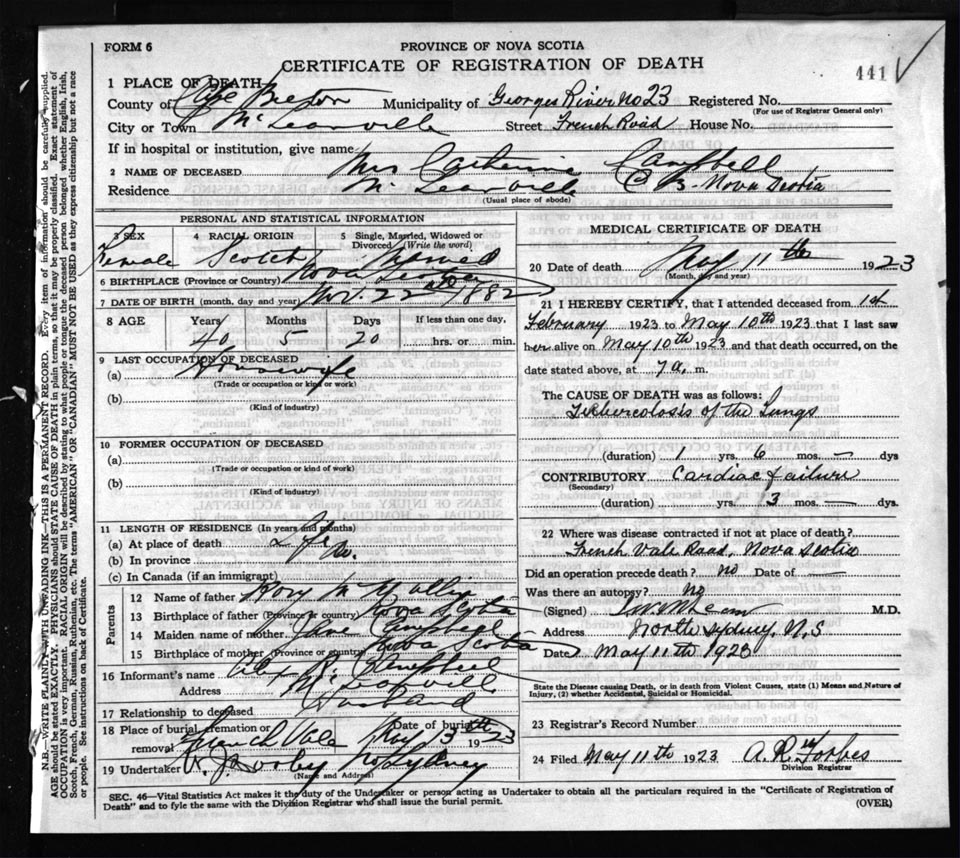 FORM 6
PROVINCE OF NOVA SCOTIA
CERTIFICATE OF REGISTRATION OF DEATH
441
1 PLACE OF DEATH
County of Cape Breton Municipality of Georges River No 23 Registered No.
(For use of Registrar General only)
City or Town McLeanville Street French Road House No.
If in hospital or institution, give name
2 NAME OF DECEASED Mrs Catherine Campbell
Residence McLeanville C B. Nova Scotia
(Usual place of abode)
PERSONAL AND STATISTICAL INFORMATION
3 SEX 4 RACIAL ORIGIN 5 Single, Married, Widowed or Divorced (Write the word)
Female Scotch Married
6 BIRTHPLACE (Province or Country) Nova Scotia
7 DATE OF BIRTH (month, day and year) 22nd 1882
8 AGE Years Months Days If less than one day,
40 5 20 hrs. or min.
9 LAST OCCUPATION OF DECEASED
(a) Housewife
(Trade or occupation or kind or work)
(b)
(Kind of industry)
10 FORMER OCCUPATION OF DECEASED
(a)
(Trade or occupation or kind of work)
(b)
(Kind of industry)
11 LENGTH OF RESIDENCE (In years and months)
(a) At place of death Life
(b) In province
(c) In Canada (if an immigrant)
Parents
12 Name of father Rory
13 Birthplace of father (Province or country) Nova Scotia
14 Maiden name of mother Campbell
15 Birthplace of mother (Province or country) Nova Scotia
16 Informant's name R. Campbell
Address McLeanville
17 Relationship to deceased Husband
18 Place of burial, cremation or removal French Vale Date of burial May 13th 1923
19 Undertaker No Sydney
(Name and Address)
MEDICAL CERTIFICATE OF DEATH
20 Date of death May 11th 1923
(Month, day and year)
21 I HEREBY CERTIFY, that I attended deceased from 1st
February 1923 to May 10th 1923 that I last saw
her alive on May 10th 1923 and that death occurred, on the
date stated above, at 7 a. m.
The CAUSE OF DEATH was as follows:
Tuberculosis of the Lungs
(duration) 1 yrs. 6 mos. — dys
CONTRIBUTORY Cardiac failure
(Secondary)
(duration) yrs. 3 mos. — dys.
22 Where was disease contracted if not at place of death?
French Vale Road, Nova Scotia
Did an operation precede death? no Date of —
Was there an autopsy? No
(Signed) M.D.
Address North Sydney, N.S
Date May 11th 1923
State the Disease causing Death, or in death from Violent Causes, state (1) Means and Nature of
Injury, (2) whether Accidental, Suicidal or Homicidal.
23 Registrar's Record Number
24 Filed May 11th 1923 A. R. Forbes
Division Registrar
SEC. 46—Vital Statistics Act makes it the duty of the Undertaker or person acting as Undertaker to obtain all the particulars required in the "Certificate of Registration of
Death" and to fyle the same with the Division Registrar who shall issue the burial permit.
(OVER)
N.B.—WRITE PLAINLY WITH UNFADING INK—THIS IS A PERMANENT RECORD. Every item of information should be carefully supplied.
AGE should be stated EXACTLY. PHYSICIANS should STATE CAUSE OF DEATH in plain terms, so that it may be properly classified. Exact statement of
OCCUPATION is very important. RACIAL ORIGIN will be described by stating to what people or tongue the deceased person belonged whether English, Irish,
Scotch, French, German, Russian, Ruthenian, etc. The terms "AMERICAN" OR "CANADIAN" MUST NOT BE USED as they express citizenship but not a race
or people. See instructions on back of Certificate.